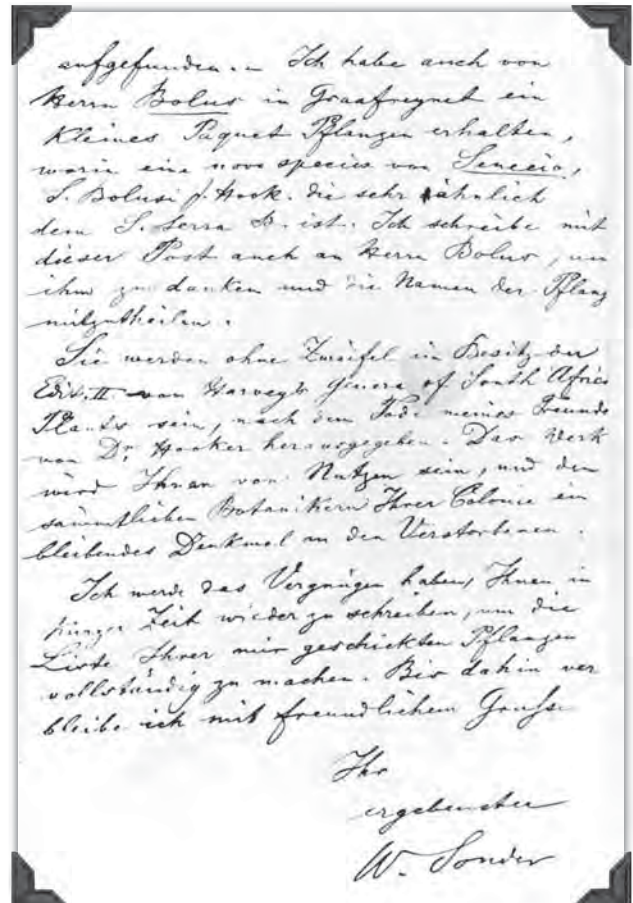 aufgefunden. – Ich habe auch von
Herrn Bolus in Graafreynet ein
kleines Paquet Pflanzen erhalten,
worin eine nova species von Senecio,
S. Bolusi J. Hook. die sehr ähnlich
dem S. serra S. ist. Ich schreibe mit
dieser Post auch an Herrn Bolus, um
ihm zu danken und die Namen der Pflanz
mitzutheilen.
Sie werden ohne Zweifel im Besitz der
Edit. II. von Harvey's Genera of South Africa
Plants sein, nach dem Tode meines Freunde
von Dr Hooker herausgegeben. Das Werk
wird Ihnen von Nutzen sein, und den
sämmtlichen Botanikern Ihrer Colonie ein
bleibendes Denkmal an den Verstorbenen.
Ich werde das Vergnügen haben, Ihnen in
kurzer Zeit wieder zu schreiben, um die
Liste Ihrer mir geschickten Pflanzen
vollständig zu machen. Bis dahin ver
bleibe ich mit freundlichem Gruße
Ihr
ergebenster
W. Sonder